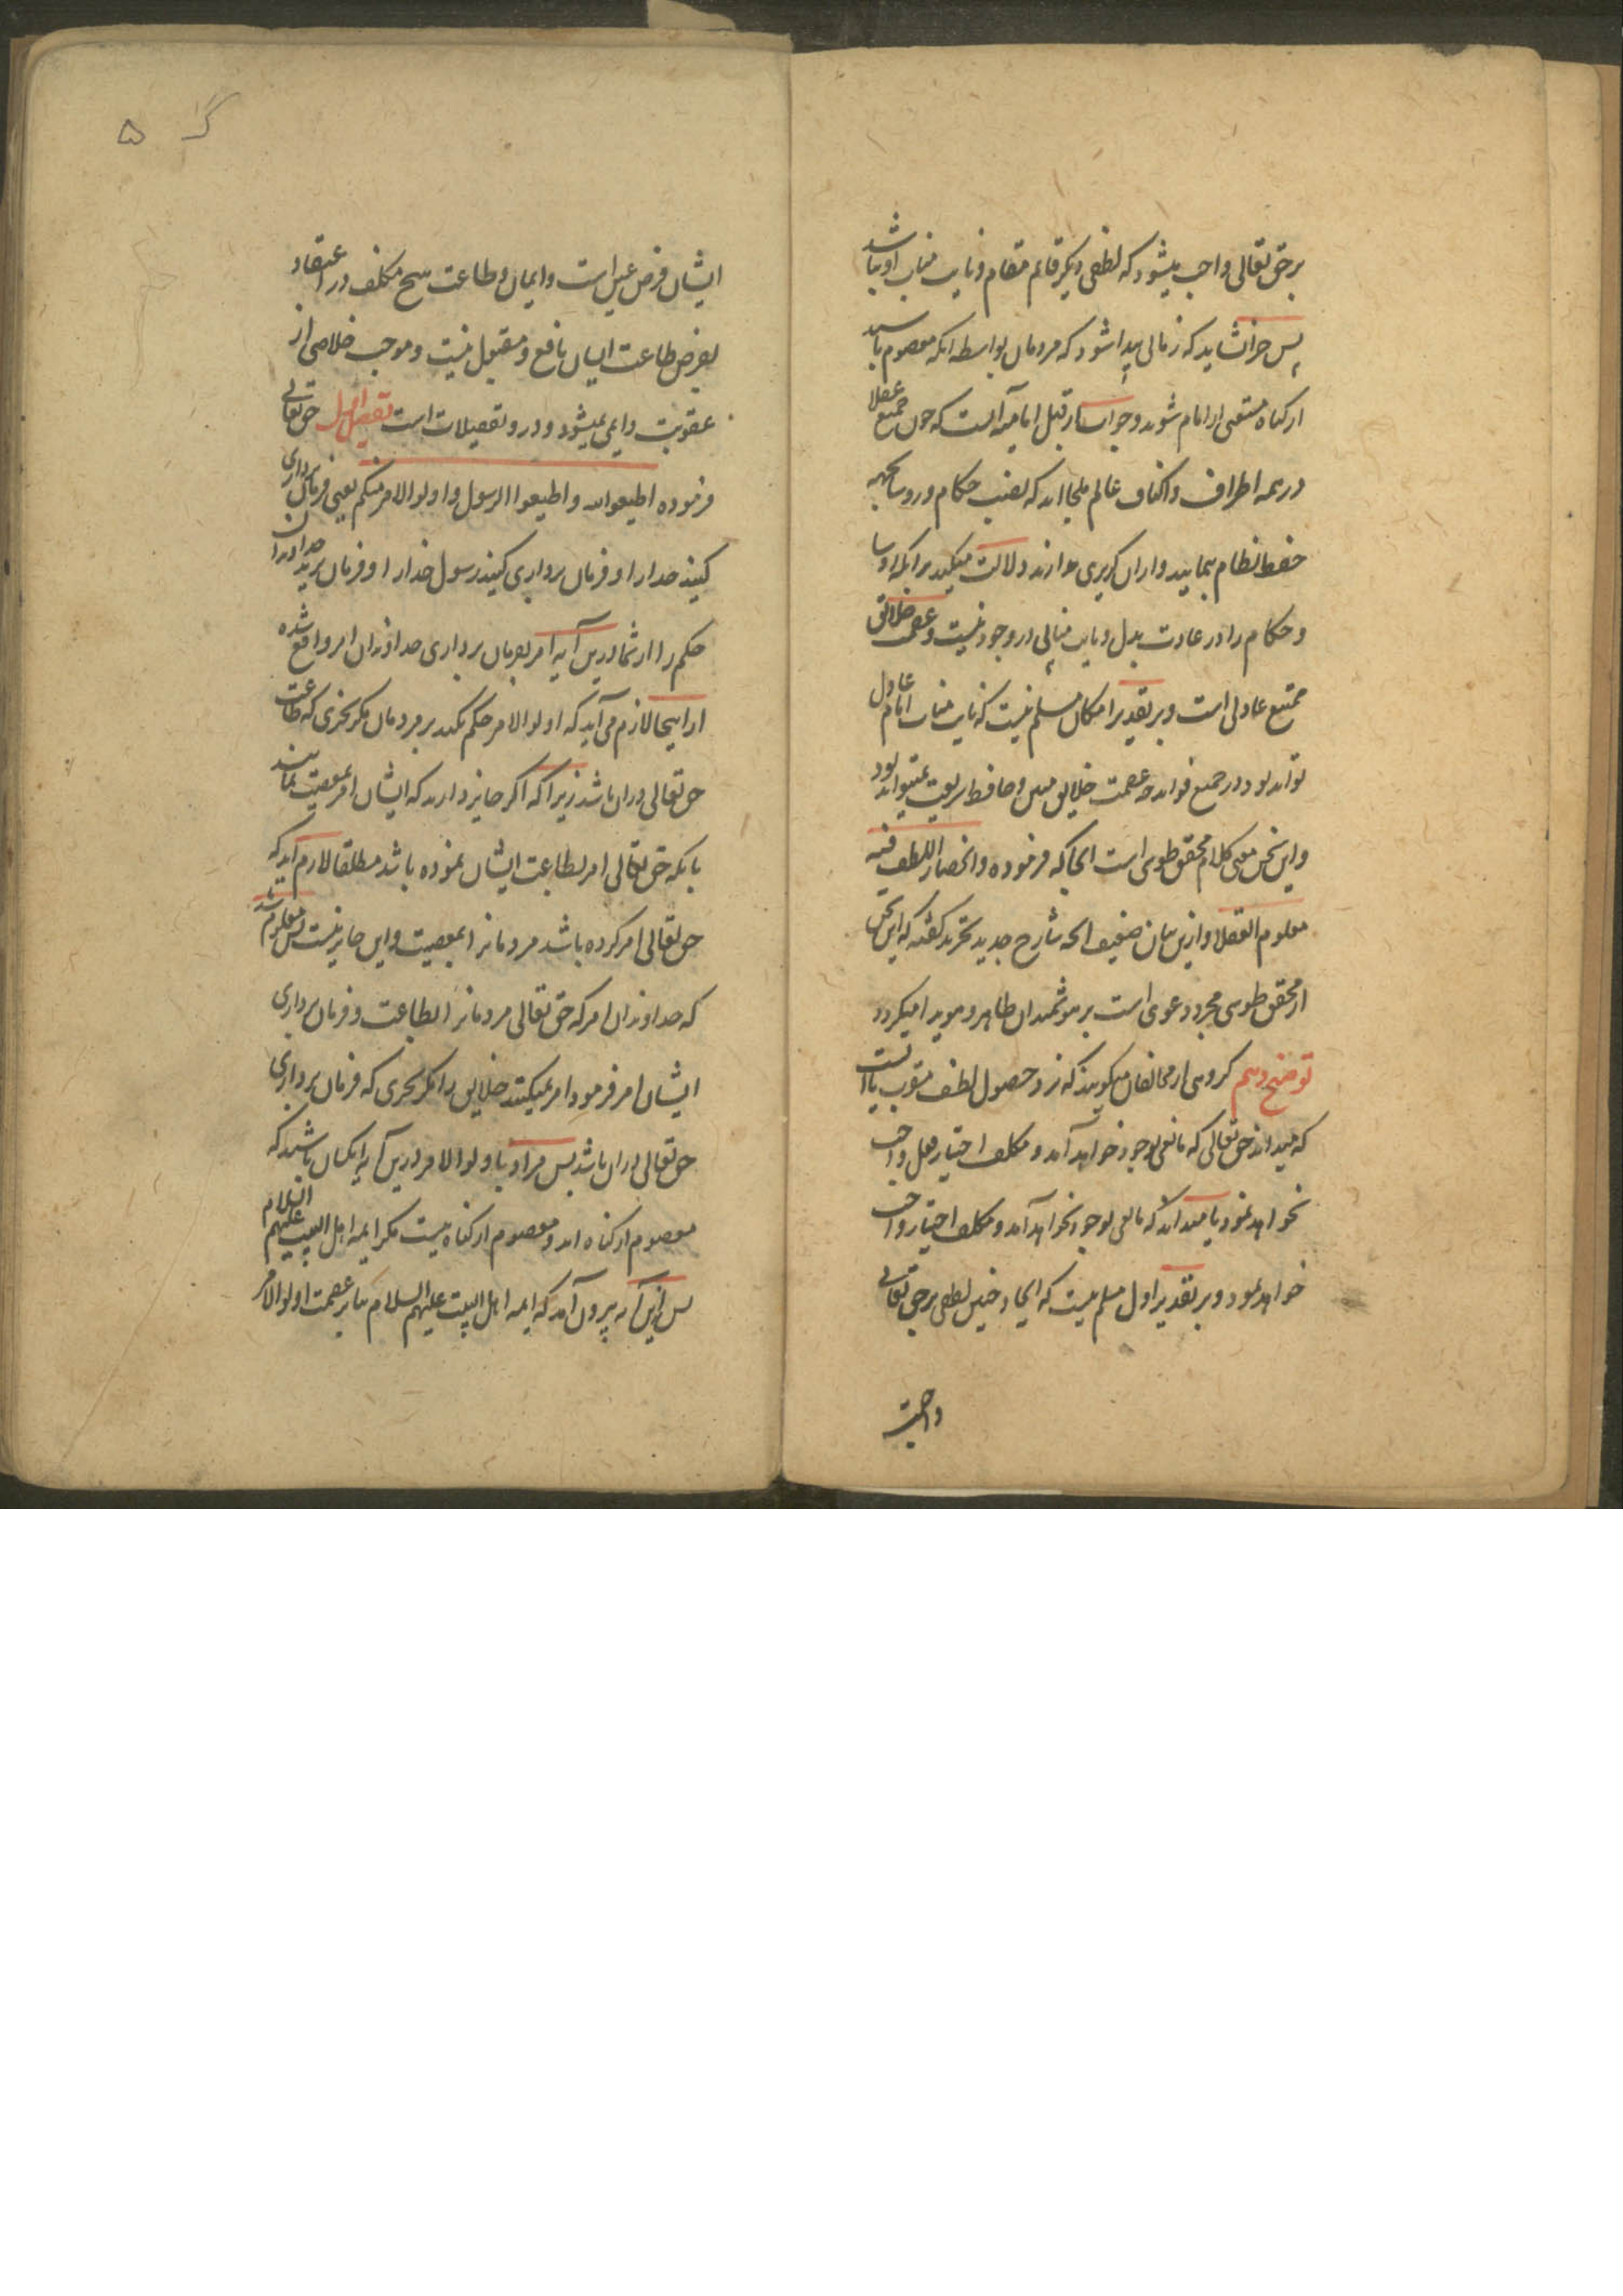 بر حق تعالی واجب میشود که لطفی دیگر قایم مقام و نایب مناب او نباشد
پس چرا نشاید که زمانی پیدا شود که مردمان بواسطه آنکه معصوم باشند
از گناه مستغنی از امام شوند و جواب از قبل امامیه آنست که چون جمیع عقلا
در همه اطراف و اکناف عالم ملجا اند که نصب حکام و روسا بجهه
حفظ نظام نمایند و از آن گریزی ندارند دلالت میکند بر آنکه روسا
و حکام را در عادت بدل و نایب منابی در وجود نیست و عصمت خلائق
ممتنع عادی است و بر تقدیر امکان مسلم نیست که نایب مناب امام عادل
تواند بود در جمیع فواید و عصمت خلایق مبین و حافظ شریعت نمیتواند بود
و این سخن معنی کلام محقق طوسی است آنجا که فرموده و انحصار اللطف فیه
معلوم للعقلا و ازین بیان ضعیف آنچه شارح جدید تجرید گفته که این سخن
از محقق طوسی مجرد دعوی است بر هوشمندان ظاهر و هویدا میگردد
توضیح دهم گروهی از مخالفان میگویند که نزد حصول لطف مقرب یا آنست
که میداند حق تعالی که مانعی بوجود خواهد آمد و مکلف اختیار فعل واجب
نخواهد نمود یا میداند که مانعی بوجود نخواهد آمد و مکلف اختیار واجب
خواهد نمود و بر تقدیر اول مسلم نیست که ایجاد چنین لطفی بر حق تعالی
واجبست
۵
ایشان فرض عین است و ایمان و طاعت هیچ مکلف در اعتقاد
بفرض طاعت ایشان نافع و مقبول نیست و موجب خلاصی از
عقوبت دایمی نمیشود و درو تفصیلات است تفصیل اول حق تعالی
فرموده اطیعوا الله و اطیعوا الرسول و اولو الامر منکم یعنی فرمان برداری
کنید خدا را و فرمان برداری کنید رسول خدا را و فرمان برید خداوندان
حکم را از شما درین آیه امر بفرمان برداری خداوندان امر واقع شده
از اینجا لازم می آید که اولو الامر حکم نکند بر مردمان مگر بچیزی که طاعت
حق تعالی در آن باشد زیرا که اگر جایز دارند که ایشان امر بمعصیت نمایند
با آنکه حق تعالی امر بطاعت ایشان نموده باشد مطلقا لازم آید که
حق تعالی امر کرده باشد مردمانرا بمعصیت و این جایز نیست پس معلوم شد
که خداوندان امر که حق تعالی مردمانرا بطاعت و فرمان برداری
ایشان امر فرموده امر نمیکنند خلایق را مگر بچیزی که فرمان برداری
حق تعالی در آن باشد پس مراد باولو الامر درین آیه آنکسان باشند که
معصوم از گناه اند و معصوم از گناه نیست مگر ایمه اهل البیت علیهم السلام
پس ازین آیه بیرون آمد که ایمه اهل البیت علیهم السلام بنا بر عصمت اولو الامر